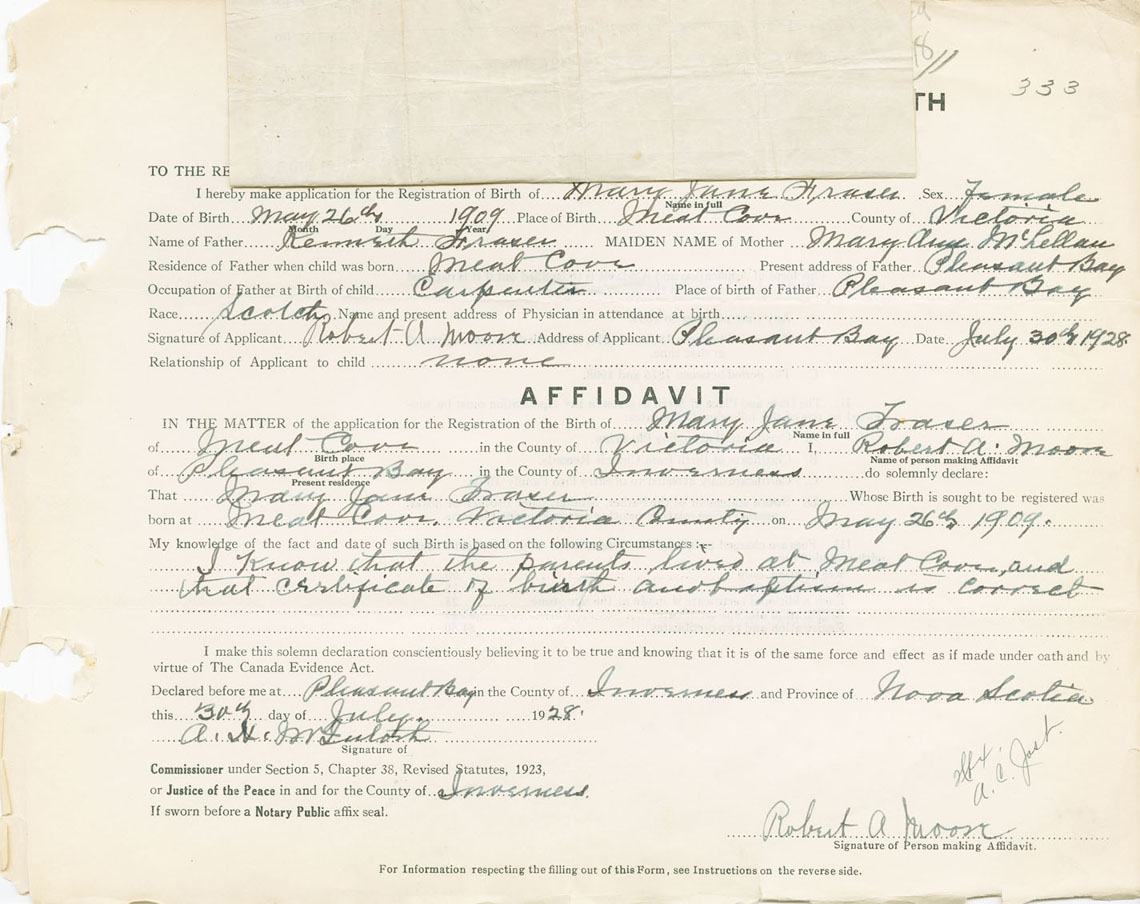 333
TH
TO THE RE
I hereby make application for the Registration of Birth of Mary Jane Fraser Sex Female
Name in full
Date of Birth May 26th 1909 Place of Birth Meat Cove County of Victoria
Month Day Year
Name of Father Kenneth Fraser MAIDEN NAME of Mother Mary Ann McLellan
Residence of Father when child was born Meat Cove Present address of Father Pleasant Bay
Occupation of Father at Birth of child Carpenter Place of birth of Father Pleasant Bay
Race Scotch Name and present address of Physician in attendance at birth
Signature of Applicant Robert A Moore Address of Applicant Pleasant Bay Date July 30th 1928
Relationship of Applicant to child none
AFFIDAVIT
IN THE MATTER of the application for the Registration of the Birth of Mary Jane Fraser
Name in full
of Meat Cove in the County of Victoria I, Robert A. Moore
Birth place Name of person making Affidavit
of Pleasant Bay in the County of Inverness do solemnly declare:
Present residence
That Mary Jane Fraser Whose Birth is sought to be registered was
born at Meat Cove, Victoria County on May 26th 1909.
My knowledge of the fact and date of such Birth is based on the following Circumstances :--
I Know that the parents lived at Meat Cove, and
that certificate of birth and baptism is correct
I make this solemn declaration conscientiously believing it to be true and knowing that it is of the same force and effect as if made under oath and by
virtue of The Canada Evidence Act.
Declared before me at Pleasant Bay in the County of Inverness and Province of Nova Scotia
this 30th day of July. 1928.
A. H. McIntosh
Signature of
Commissioner under Section 5, Chapter 38, Revised Statutes, 1923,
or Justice of the Peace in and for the County of Inverness.
If sworn before a Notary Public affix seal.
Robert A Moore
Signature of Person making Affidavit.
For Information respecting the filling out of this Form, see Instructions on the reverse side.